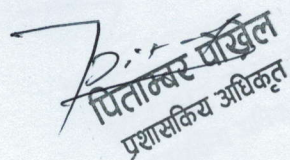 पिताम्बर पोख्रेल
प्रशासकिय अधिकृत